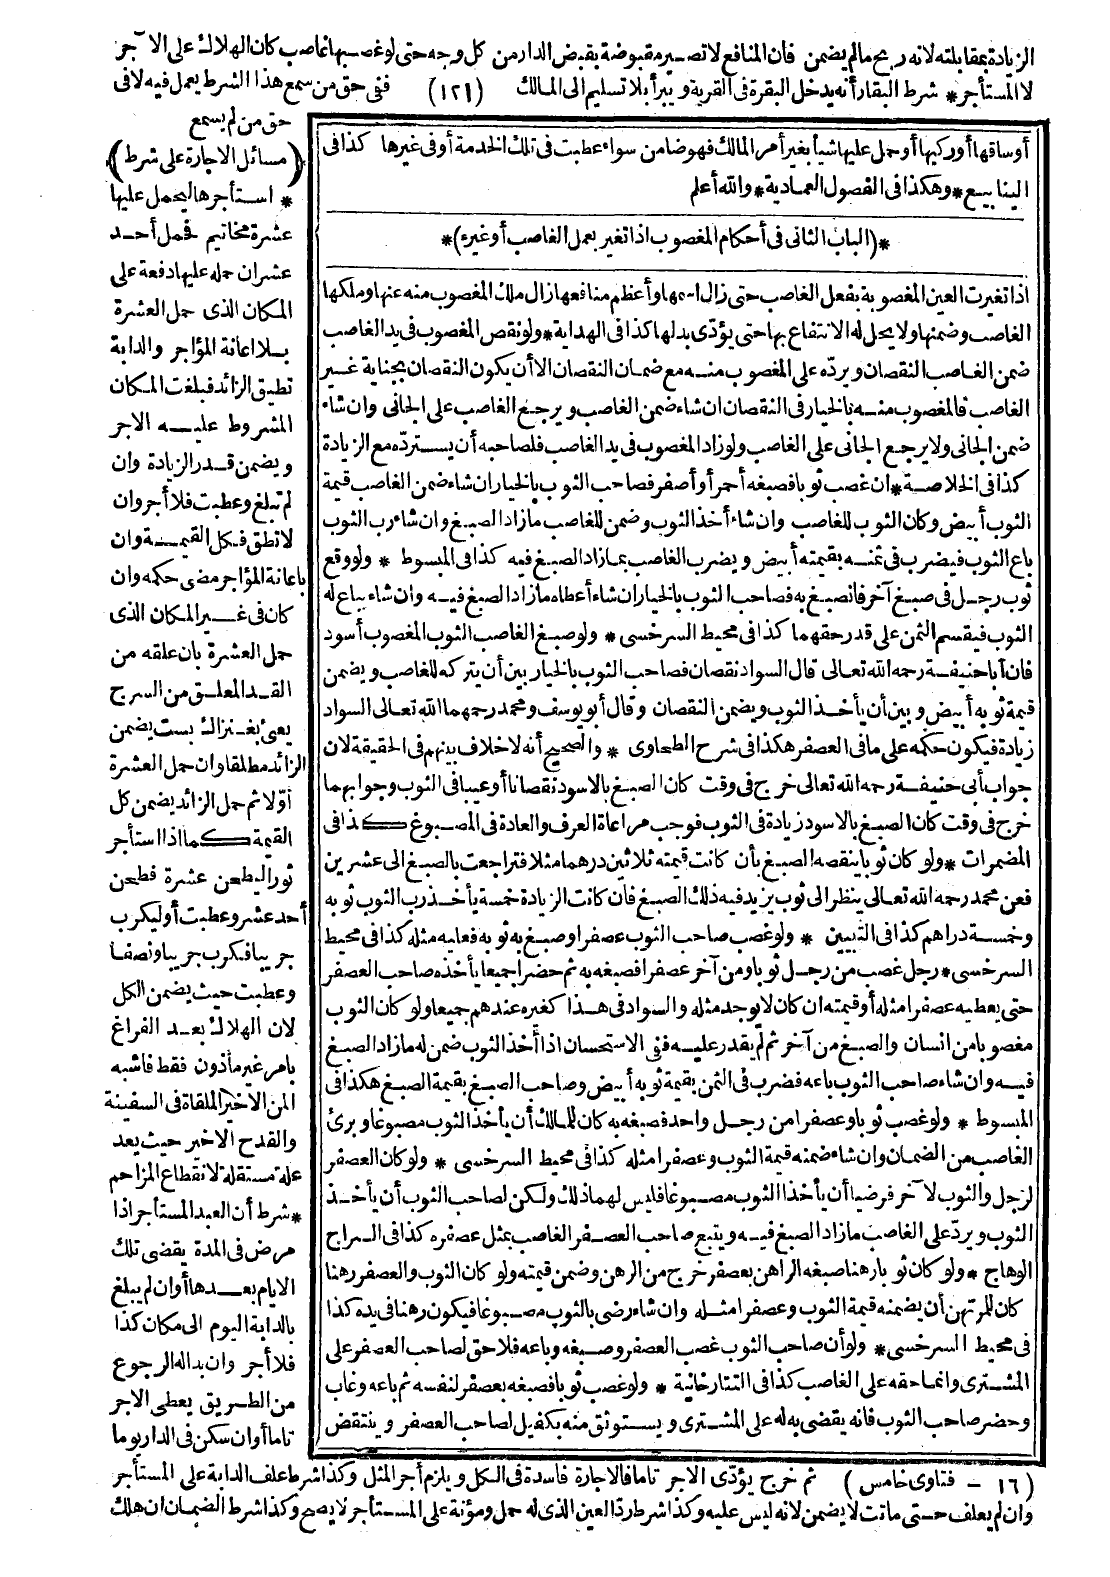 الزيادة بمقابلته لانه ربح مالم يضمن فان المنافع لا تصير مقبوضة بقبض الدار من كل وجه حتى لو غصبها غاصب كان الهلاك على الآجر
لا المستأجر * شرط البقار أنه يدخل البقرة فى القرية ويبرأ بلا تسليم الى المالك (١٢١) ففى حق من سمع هذا الشرط يعمل فيه لا فى
حق من لم يسمع
(مسائل الاجارة على شرط)
* استأجرها ليحمل عليها
عشرة مخاتيم فحمل أحد
عشر ان حمله عليها دفعة على
المكان الذى حمل العشرة
بلا اعانة المؤاجر والدابة
تطيق الزائد فبلغت المكان
المشروط عليه الاجر
ويضمن قدر الزيادة وان
لم تبلغ وعطبت فلا أجر وان
لا تطق فكل القيمة وان
باعانة المؤاجر مضى حكمه وان
كان فى غير المكان الذى
حمل العشرة بان علقه من
القد المعلق من السرج
يعنى بغنزاك بست يضمن
الزائد مطلقا وان حمل العشرة
أولا ثم حمل الزائد يضمن كل
القيمة كما اذا استأجر
ثور اليطحن عشرة فطحن
أحد عشر وعطبت أو ليكرب
جريبا فكرب جريبا ونصفا
وعطبت حيث يضمن الكل
لان الهلاك بعد الفراغ
بامر غير مأذون فقط فاشبه
المن الاخير الملقاة فى السفينة
والقدح الاخير حيث يعد
علة مستقلة لانقطاع المزاحم
* شرط أن العبد المستأجر اذا
مرض فى المدة يقضى تلك
الايام بعدها أو ان لم يبلغ
بالدابة اليوم الى مكان كذا
فلا أجر وان بداله الرجوع
من الطريق يعطى الاجر
تاما أو ان سكن فى الدار يوما
أو ساقها أو ركبها أو حمل عليها شيأ بغير أمر المالك فهو ضامن سواء عطبت فى تلك الخدمة أو فى غيرها كذا فى
الينابيع * وهكذا فى الفصول العمادية * والله أعلم
* (الباب الثانى فى أحكام المغصوب اذا تغير بعمل الغاصب أو غيره) *
اذا تغيرت العين المغصوبة بفعل الغاصب حتى زال اسمها وأعظم منافعها زال ملك المغصوب منه عنها وملكها
الغاصب وضمنها ولا يحل له الانتفاع بها حتى يؤدى بدلها كذا فى الهداية * ولو نقص المغصوب فى يد الغاصب
ضمن الغاصب النقصان ويرده على المغصوب منه مع ضمان النقصان الا أن يكون النقصان بجناية غير
الغاصب فالمغصوب منه بالخيار فى النقصان ان شاء ضمن الغاصب ويرجع الغاصب على الجانى وان شاء
ضمن الجانى ولا يرجع الجانى على الغاصب ولو زاد المغصوب فى يد الغاصب فلصاحبه أن يسترده مع الزيادة
كذا فى الخلاصة * ان غصب ثوبا فصبغه أحمر أو أصفر فصاحب الثوب بالخيار ان شاء ضمن الغاصب قيمة
الثوب أبيض وكان الثوب للغاصب وان شاء أخذ الثوب وضمن للغاصب ما زاد الصبغ وان شاء رب الثوب
باع الثوب فيضرب فى ثمنه بقيمته أبيض ويضرب الغاصب بما زاد الصبغ فيه كذا فى المبسوط * ولو وقع
ثوب رجل فى صبغ آخر فانصبغ به فصاحب الثوب بالخيار ان شاء أعطاه ما زاد الصبغ فيه وان شاء يباع له
الثوب فيقسم الثمن على قدر حقهما كذا فى محيط السرخسى * ولو صبغ الغاصب الثوب المغصوب أسود
فان أبا حنيفة رحمه الله تعالى قال السواد نقصان فصاحب الثوب بالخيار بين أن يتركه للغاصب ويضمن
قيمة ثوبه أبيض وبين أن يأخذ الثوب ويضمن النقصان وقال أبو يوسف ومحمد رحمهما الله تعالى السواد
زيادة فيكون حكمه على ما فى العصفر هكذا فى شرح الطحاوى * والصحيح أنه لا خلاف بينهم فى الحقيقة لان
جواب أبى حنيفة رحمه الله تعالى خرج فى وقت كان الصبغ بالاسود نقصانا أو عيبا فى الثوب وجوابهما
خرج فى وقت كان الصبغ بالاسود زيادة فى الثوب فوجب مراعاة العرف والعادة فى المصبوغ كذا فى
المضمرات * ولو كان ثوبا ينقصه الصبغ بأن كانت قيمته ثلاثين درهما مثلا فتراجعت بالصبغ الى عشرين
فعن محمد رحمه الله تعالى ينظر الى ثوب يزيد فيه ذلك الصبغ فان كانت الزيادة خمسة يأخذ رب الثوب ثوبه
وخمسة دراهم كذا فى التبيين * ولو غصب صاحب الثوب عصفرا وصبغ به ثوبه فعليه مثله كذا فى محيط
السرخسى * رجل غصب من رجل ثوبا ومن آخر عصفرا فصبغه به ثم حضرا جميعا يأخذه صاحب العصفر
حتى يعطيه عصفرا مثله أو قيمته ان كان لا يوجد مثله والسواد فى هذا كغيره عندهم جميعا ولو كان الثوب
مغصوبا من انسان والصبغ من آخر ثم لم يقدر عليه ففى الاستحسان اذا أخذ الثوب ضمن له ما زاد الصبغ
فيه وان شاء صاحب الثوب باعه فضرب فى الثمن بقيمة ثوبه أبيض وصاحب الصبغ بقيمة الصبغ هكذا فى
المبسوط * ولو غصب ثوبا وعصفرا من رجل واحد فصبغه به كان للمالك أن يأخذ الثوب مصبوغا وبرئ
الغاصب من الضمان وان شاء ضمنه قيمة الثوب وعصفرا مثله كذا فى محيط السرخسى * ولو كان العصفر
لرجل والثوب لآخر فرضيا أن يأخذا الثوب مصبوغا فليس لهما ذلك ولكن لصاحب الثوب أن يأخذ
الثوب ويرد على الغاصب ما زاد الصبغ فيه ويتبع صاحب العصفر الغاصب بمثل عصفره كذا فى السراج
الوهاج * ولو كان ثوبا رهنا صبغه الراهن بعصفر خرج من الرهن وضمن قيمته ولو كان الثوب والعصفر رهنا
كان للمرتهن أن يضمنه قيمة الثوب وعصفرا مثله وان شاء رضى بالثوب مصبوغا فيكون رهنا فى يده كذا
فى محيط السرخسى * ولو أن صاحب الثوب غصب العصفر وصبغه وباعه فلا حق لصاحب العصفر على
المشترى وانما حقه على الغاصب كذا فى التتارخانية * ولو غصب ثوبا فصبغه بعصفر لنفسه ثم باعه وغاب
وحضر صاحب الثوب فانه يقضى به له على المشترى ويستوثق منه بكفيل لصاحب العصفر وينتقض
(١٦ - فتاوى خامس) ثم خرج يؤدى الاجر تاما فالاجارة فاسدة فى الكل ويلزم أجر المثل وكذا شرط علف الدابة على المستأجر
وان لم يعلف حتى ماتت لا يضمن لانه ليس عليه وكذا شرط رد العين الذى له حمل ومؤنة على المستأجر لا يصح وكذا شرط الضمان ان هلك